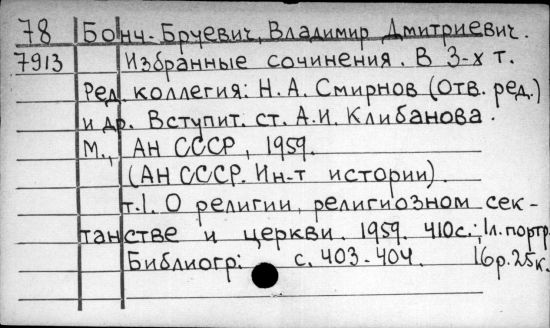 78 Бонч-Бруевич, Владимир Дмитриевич.
7913 Избранные сочинения. В 3-х т.
Ред. коллегия: Н.А. Смирнов (отв. ред.)
и др. Вступит. ст. А.И. Клибанова.
М., АН СССР, 1959.
(АН СССР. Ин-т истории).
т.1. О религии, религиозном сек-
танстве и церкви. 1959. 410с.; 1л. портр.
Библиогр: с. 403-404. 16р.25к.